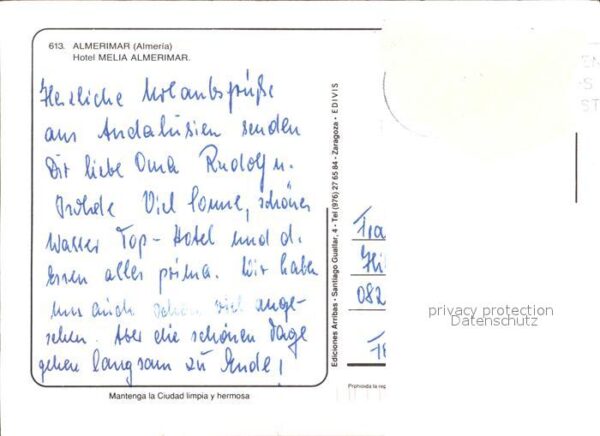 613. ALMERIMAR (Almería)
Hotel MELIA ALMERIMAR.
Herzliche Urlaubsgrüße
aus Andalusien senden
Dir liebe Oma Rudolf u.
Viel Sonne, schönes
Wasser Top-Hotel und d.
Essen alles prima. Wir haben
uns auch schon viel ange-
sehen. Aber die schönen Tage
gehen langsam zu Ende!
Mantenga la Ciudad limpia y hermosa
Ediciones Arribas - Santiago Guallar, 4 - Tel (976) 27 65 84 - Zaragoza - EDIVIS
EN
S
ST
Fra
Hil
082
privacy protection
Datenschutz
Prohibida la rep